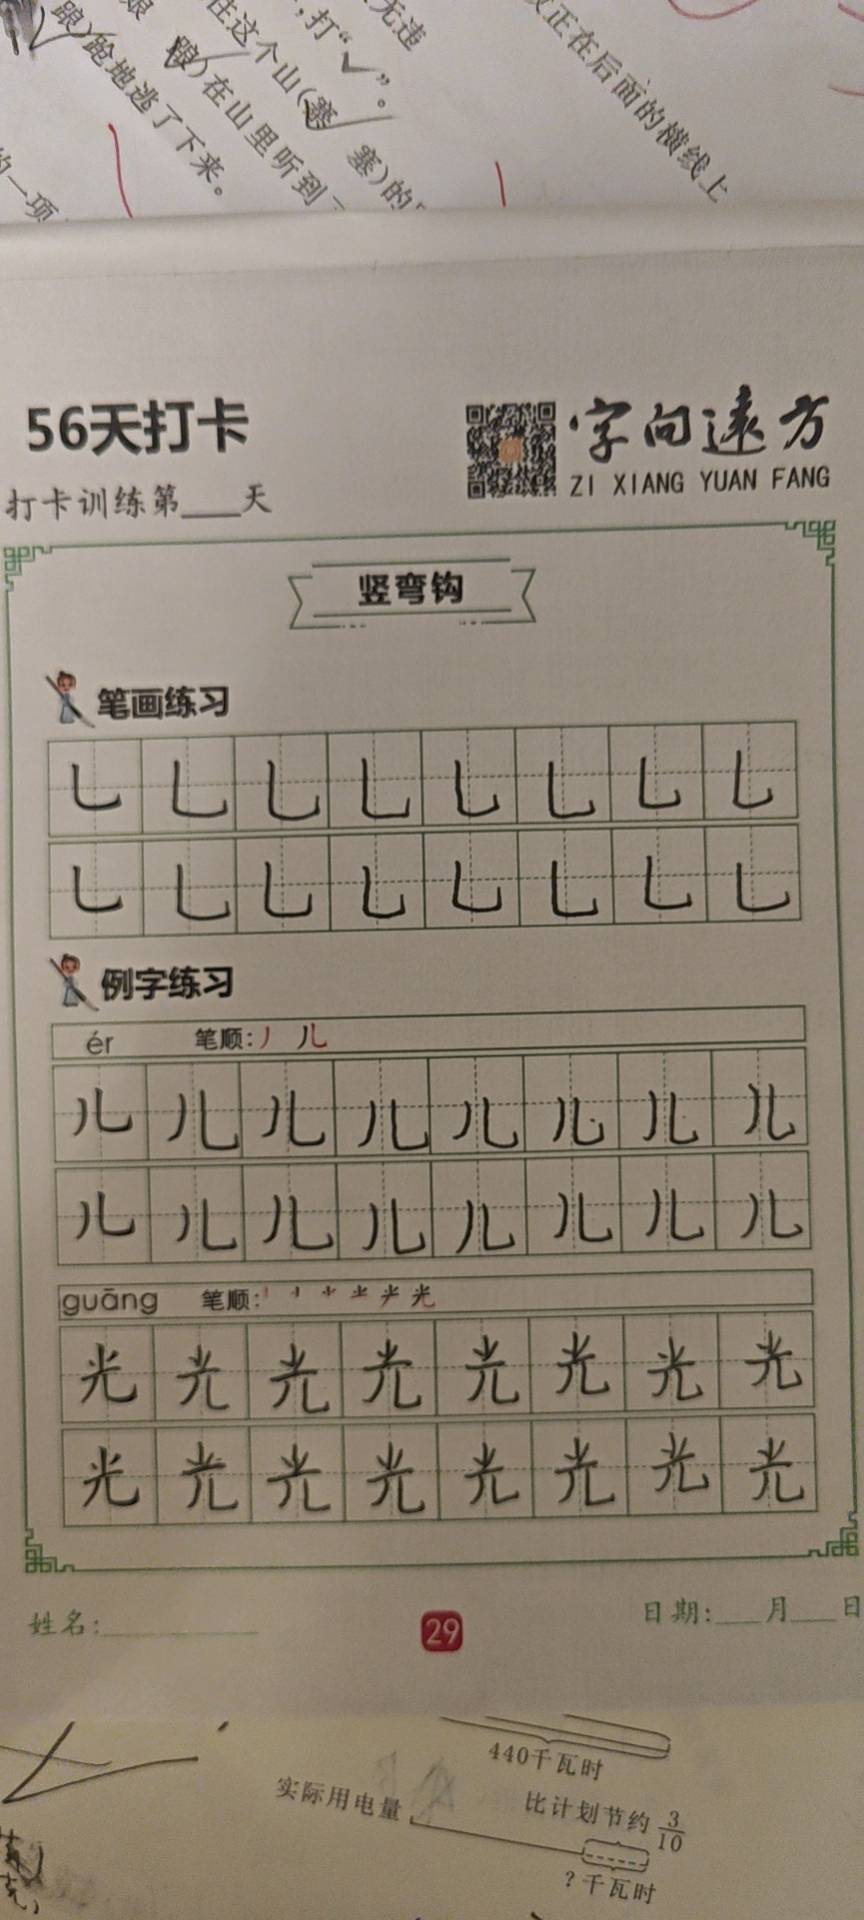 踉)跄地逃了下来。
踉)在山里听到
往这个山(寨 塞)的
,打“✓”。
无违
改正在后面的横线上
的一项
56天打卡
字向遠方
ZI XIANG YUAN FANG
打卡训练第____天
竖弯钩
笔画练习
乚 乚 乚 乚 乚 乚 乚 乚
乚 乚 乚 乚 乚 乚 乚 乚
例字练习
ér 笔顺:丿 儿
儿 儿 儿 儿 儿 儿 儿 儿
儿 儿 儿 儿 儿 儿 儿 儿
guāng 笔顺: 光
光 光 光 光 光 光 光 光
光 光 光 光 光 光 光 光
姓名:
29
日期:___月___日
440千瓦时
实际用电量
比计划节约 3/10
?千瓦时